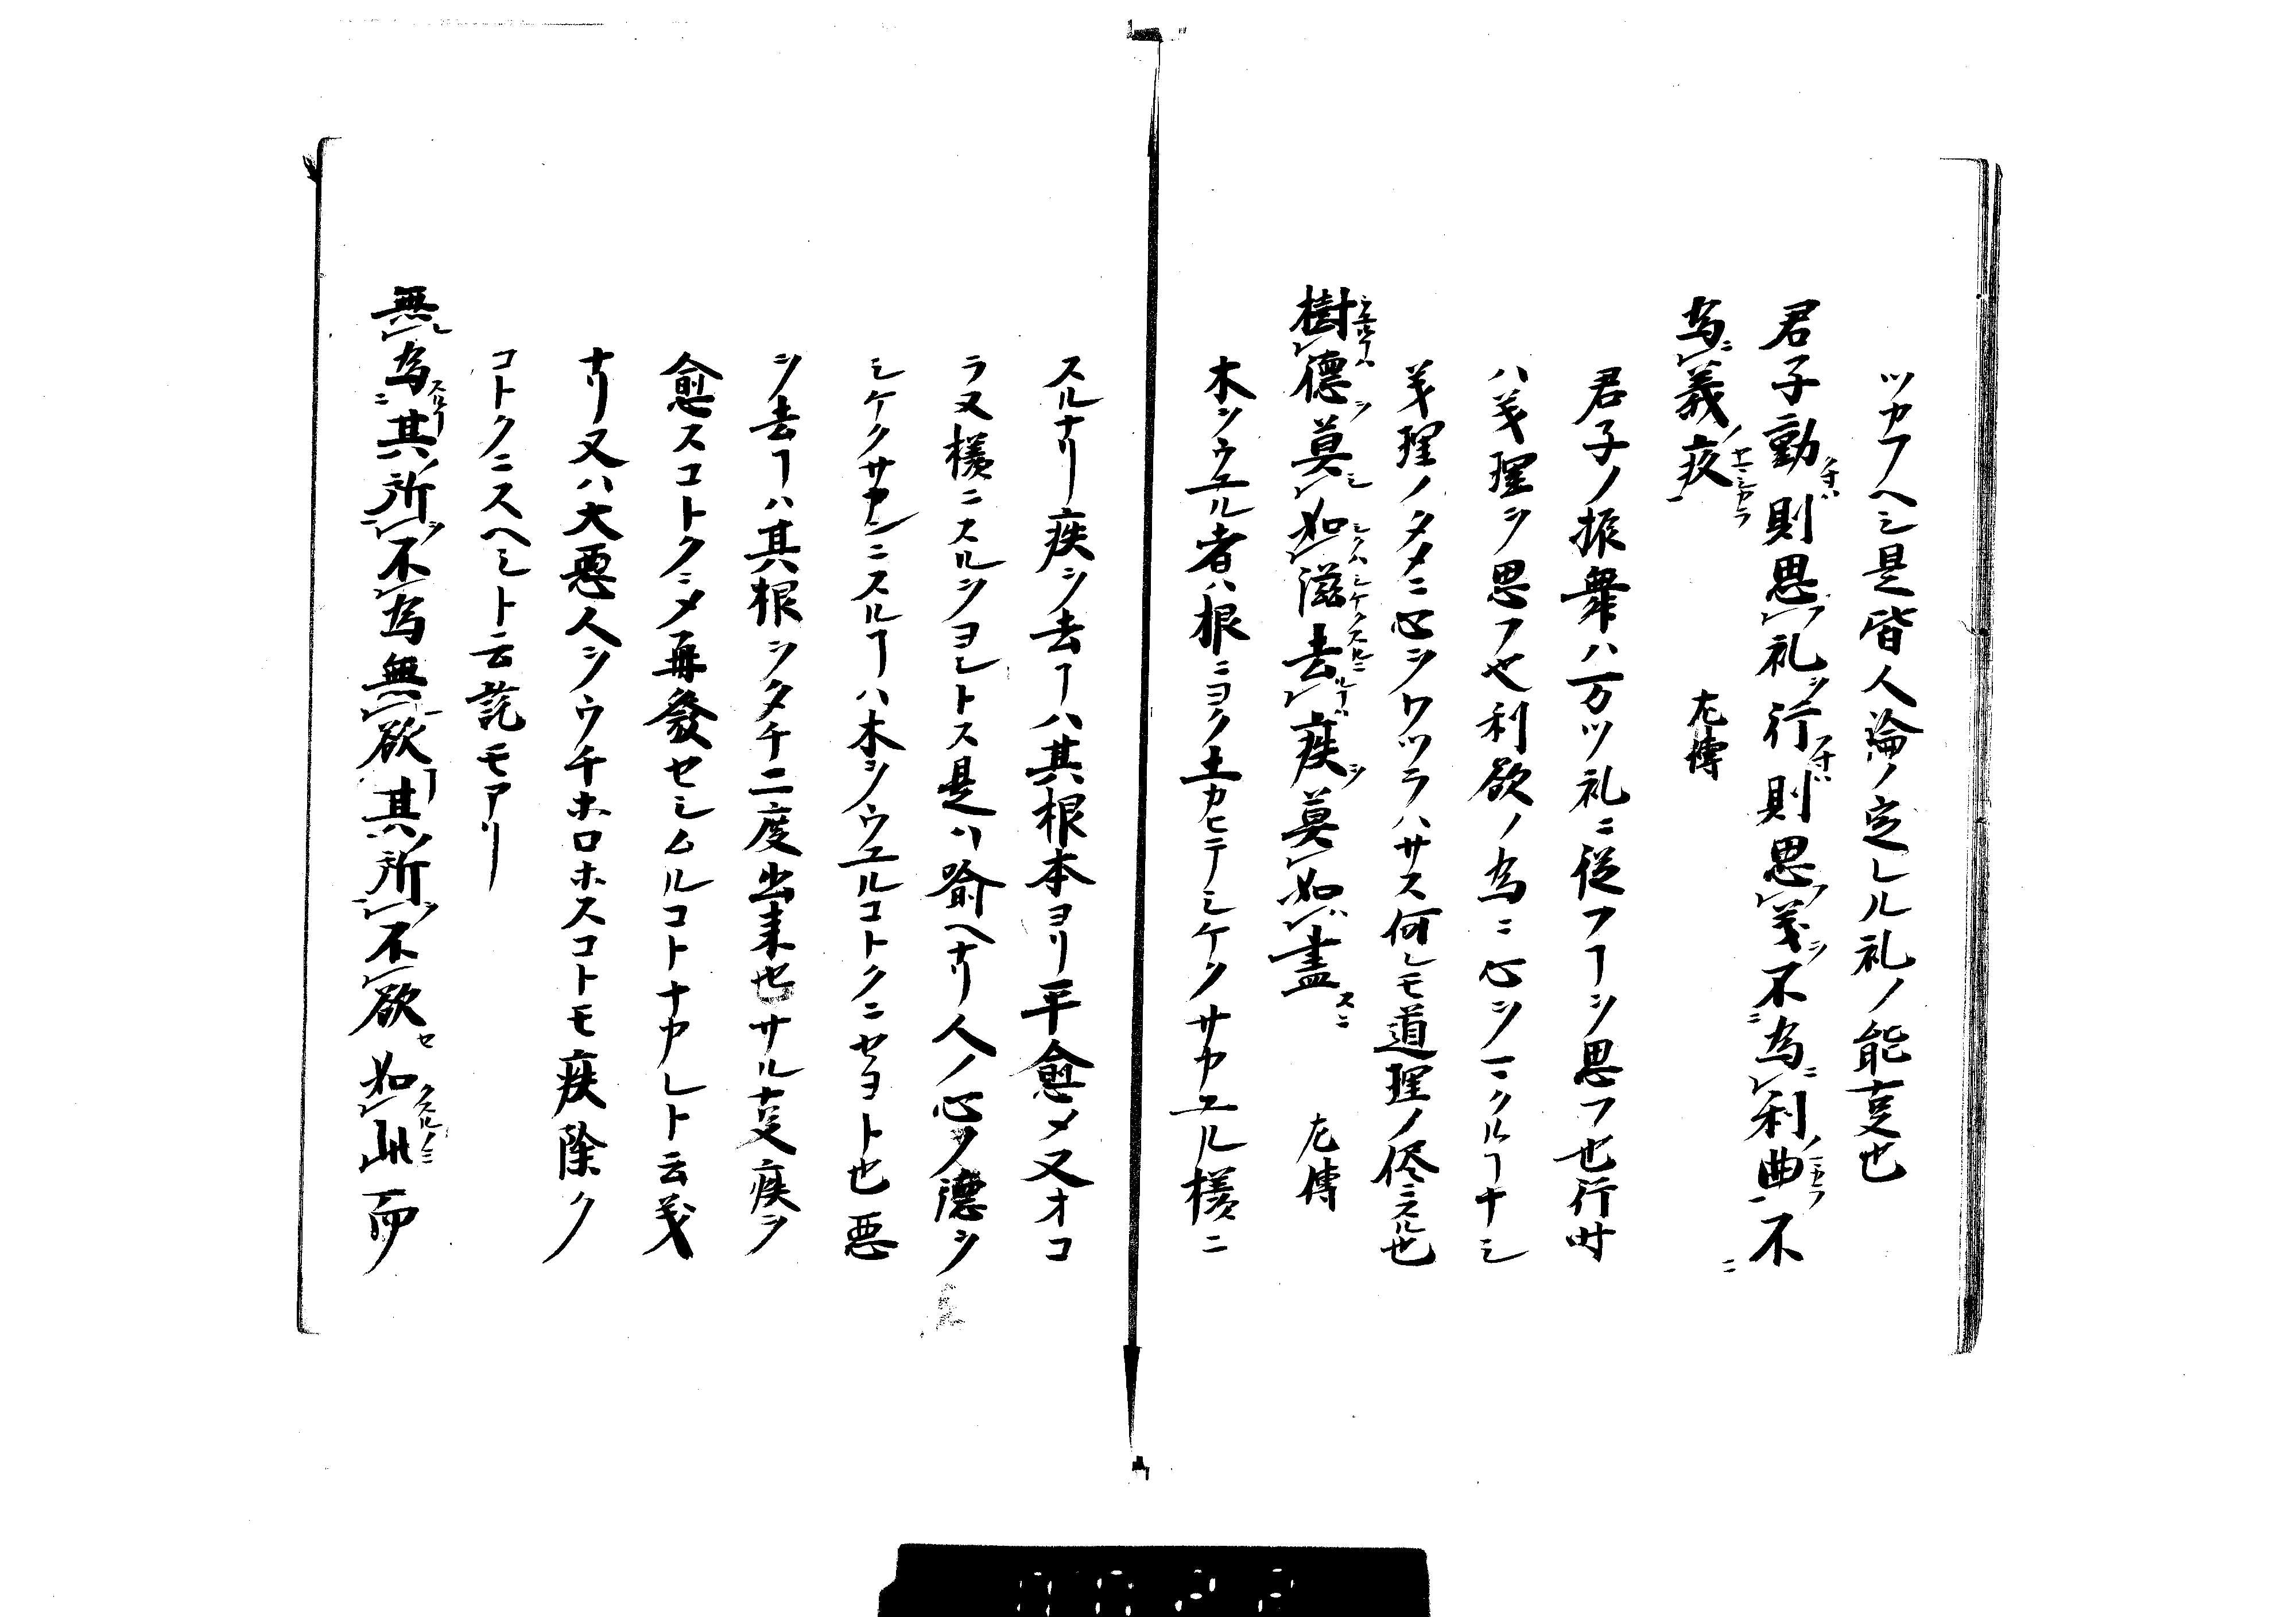 ツカフヘシ是皆人論ノ定レル礼ノ能叓也
君子動則思礼行則思義不為利曲不
為義疚　　　左傳
君子ノ振舞ハ一万ツ礼ニ従フヿヲ思フ也行時
ハ義理ヲ思フ也利欲ノ為ニ心ヲマクルヿナシ
義理ノタメニ心ヲワツラハサス何レモ道理ノ侭ニスル也
樹德莫如滋去疾莫如盡　　　左傳
木ヲウユル者ハ根ニヨク土カヒテシケクサカユル様ニ
スルナリ疾ヲ去ヿハ其根本ヨリ平愈メ又オコ
ラヌ様ニスルヲヨシトス是ハ喩ヘナリ人ノ心ノ德ヲ
シケクサカンニスルヿハ木ヲウユルコトクニセヨト也悪
ヲ去ヿハ其根ヲタチ二度出来セサル叓疾ヲ
愈スコトクニメ再發セシムルコトナカレト云義
ナリ又ハ大悪人ヲウチホロホスコトモ疾除ク
コトクニスヘシト云説モアリ
無為其所不為無欲其所不欲如此而